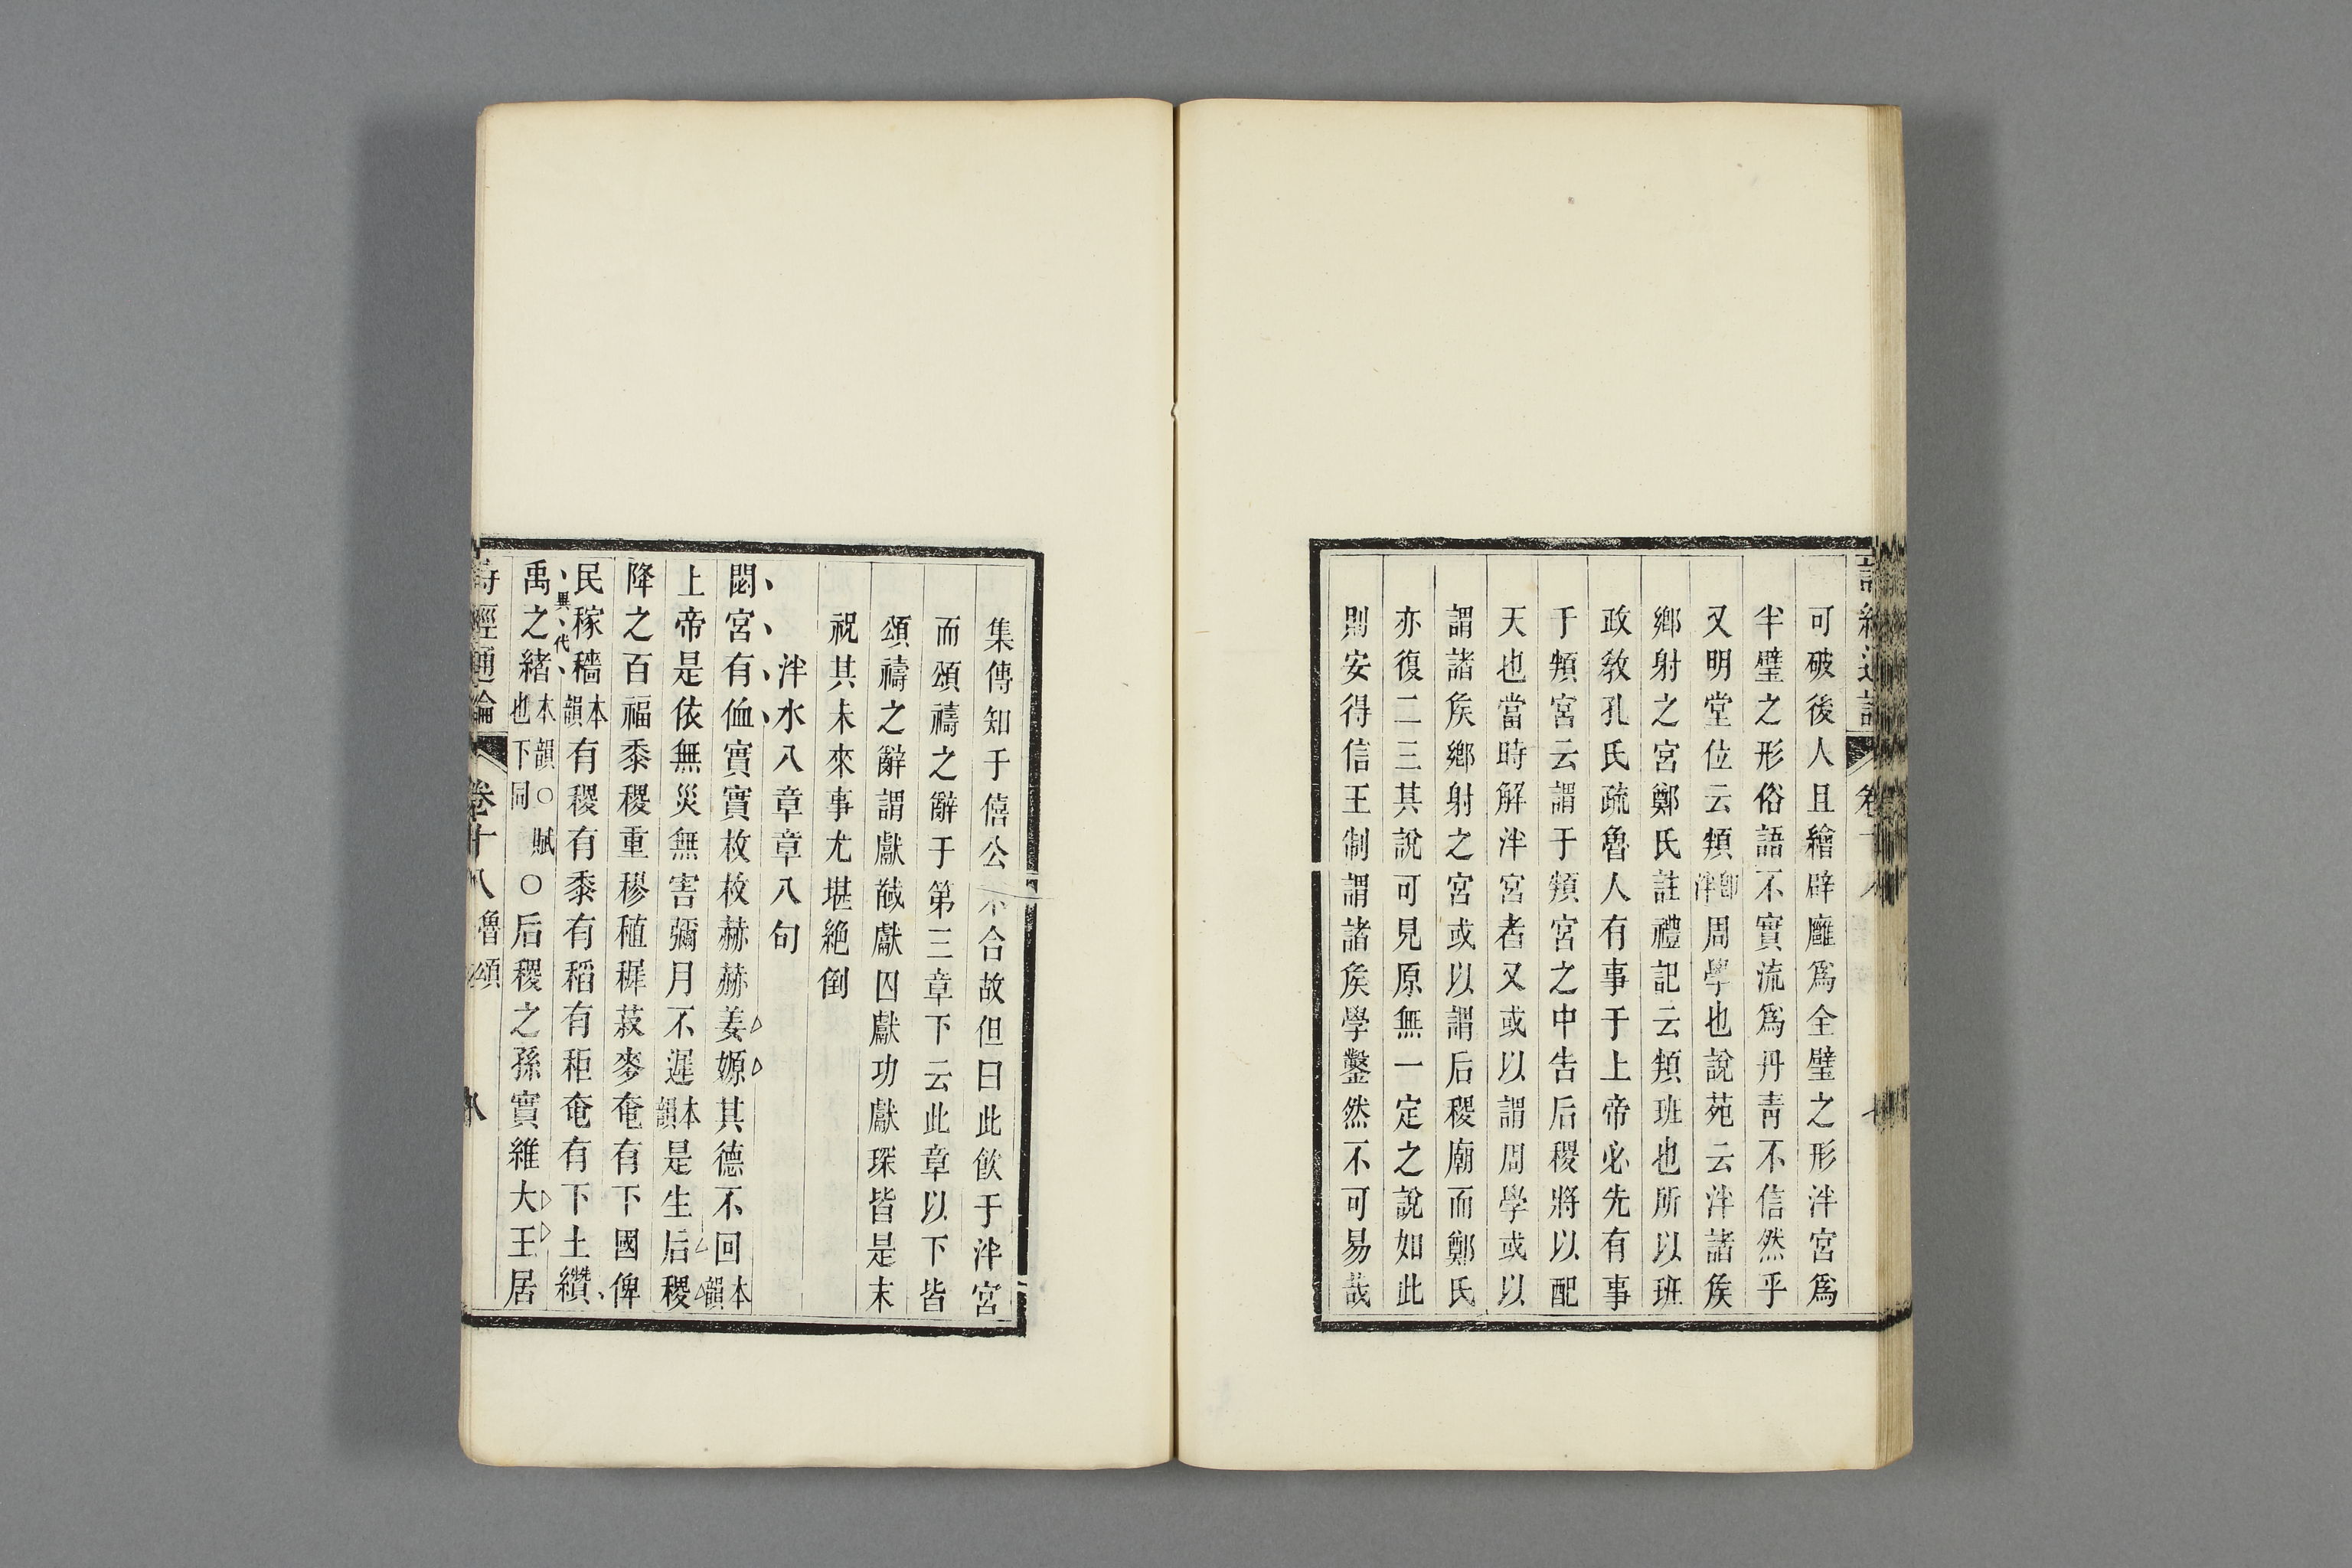 可破後人且繪辟廱爲全璧之形泮宮爲
半璧之形俗語不實流爲丹青不信然乎
又明堂位云頖卽泮周學也說苑云泮諸矦
鄉射之宮鄭氏註禮記云頖班也所以班
政敎孔氏疏魯人有事于上帝必先有事
于頖宮云謂于頖宮之中告后稷將以配
天也當時解泮宮者又或以謂周學或以
謂諸矦鄉射之宮或以謂后稷廟而鄭氏
亦復二三其說可見原無一定之說如此
則安得信王制謂諸矦學鑿然不可易哉
集傳知于僖公不合故但曰此飮于泮宮
而頌禱之辭于第三章下云此章以下皆
頌禱之辭謂獻馘獻囚獻功獻琛皆是末
祝其未來事尤堪絶倒
泮水八章章八句
閟宮有侐實實枚枚赫赫姜嫄其德不回本韻
上帝是依無災無害彌月不遲本韻是生后稷
降之百福黍稷重穋稙穉菽麥奄有下國俾
民稼穡本韻有稷有黍有稻有秬奄有下土纘
異代
禹之緖本韻也下同○賦○后稷之孫實維大王居
詩經通論
卷十八魯頌
八